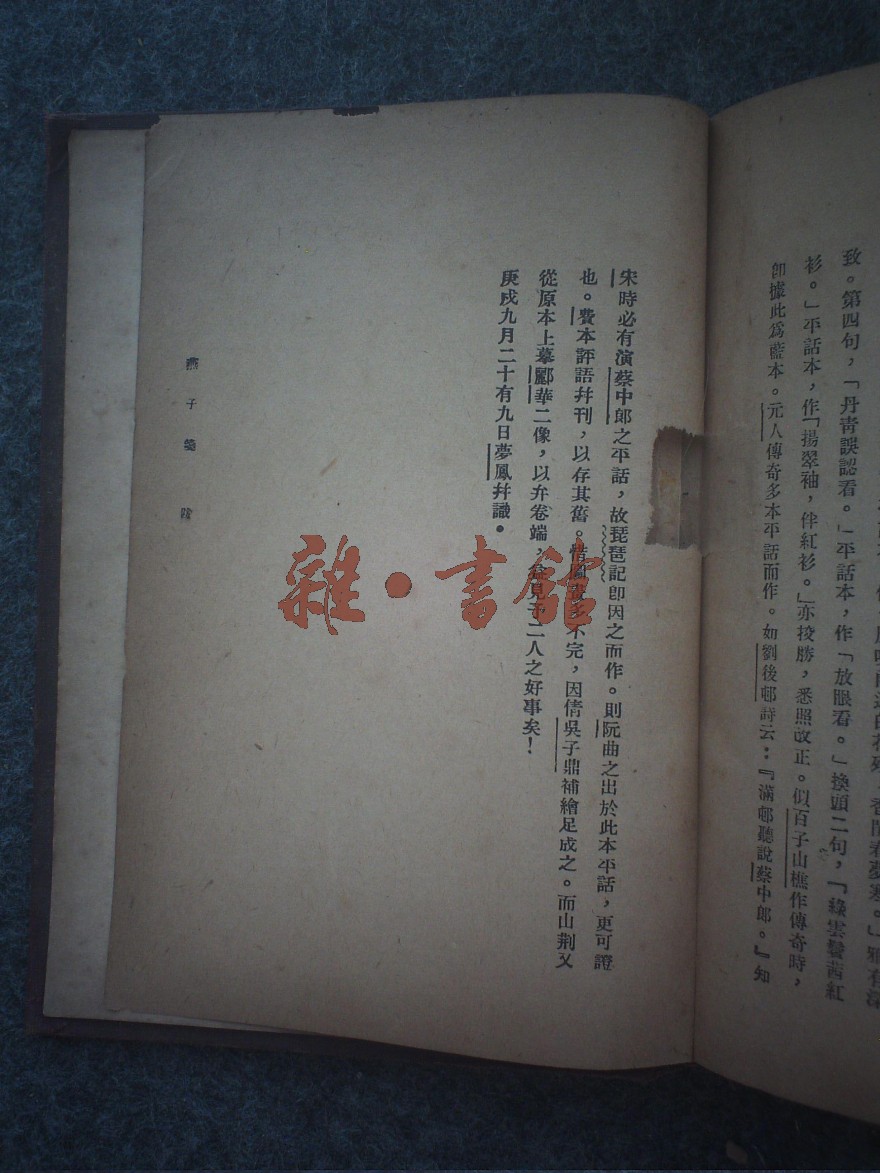 致。第四句，「丹青誤認看。」平話本，作「放眼看。」換頭二句，「綠雲鬢茜紅
衫。」平話本，作「揚翠袖，伴紅衫。」亦較勝，悉照改正。似百子山樵作傳奇時，
卽據此爲藍本。元人傳奇多本平話而作。如劉後邨詩云：『滿邨聽說蔡中郎。』知
宋時必有演蔡中郎之平話，故琵琶記卽因之而作。則阮曲之出於此本平話，更可證
也。費本評語幷刊，以存其舊。惜圖畫多不完，因倩吳子鼎補繪足成之。而山荆又
從原本上摹酈華二像，以弁卷端，益見予二人之好事矣！
庚戌九月二十有九日夢鳳幷識。
燕子箋 跋
雜·書館